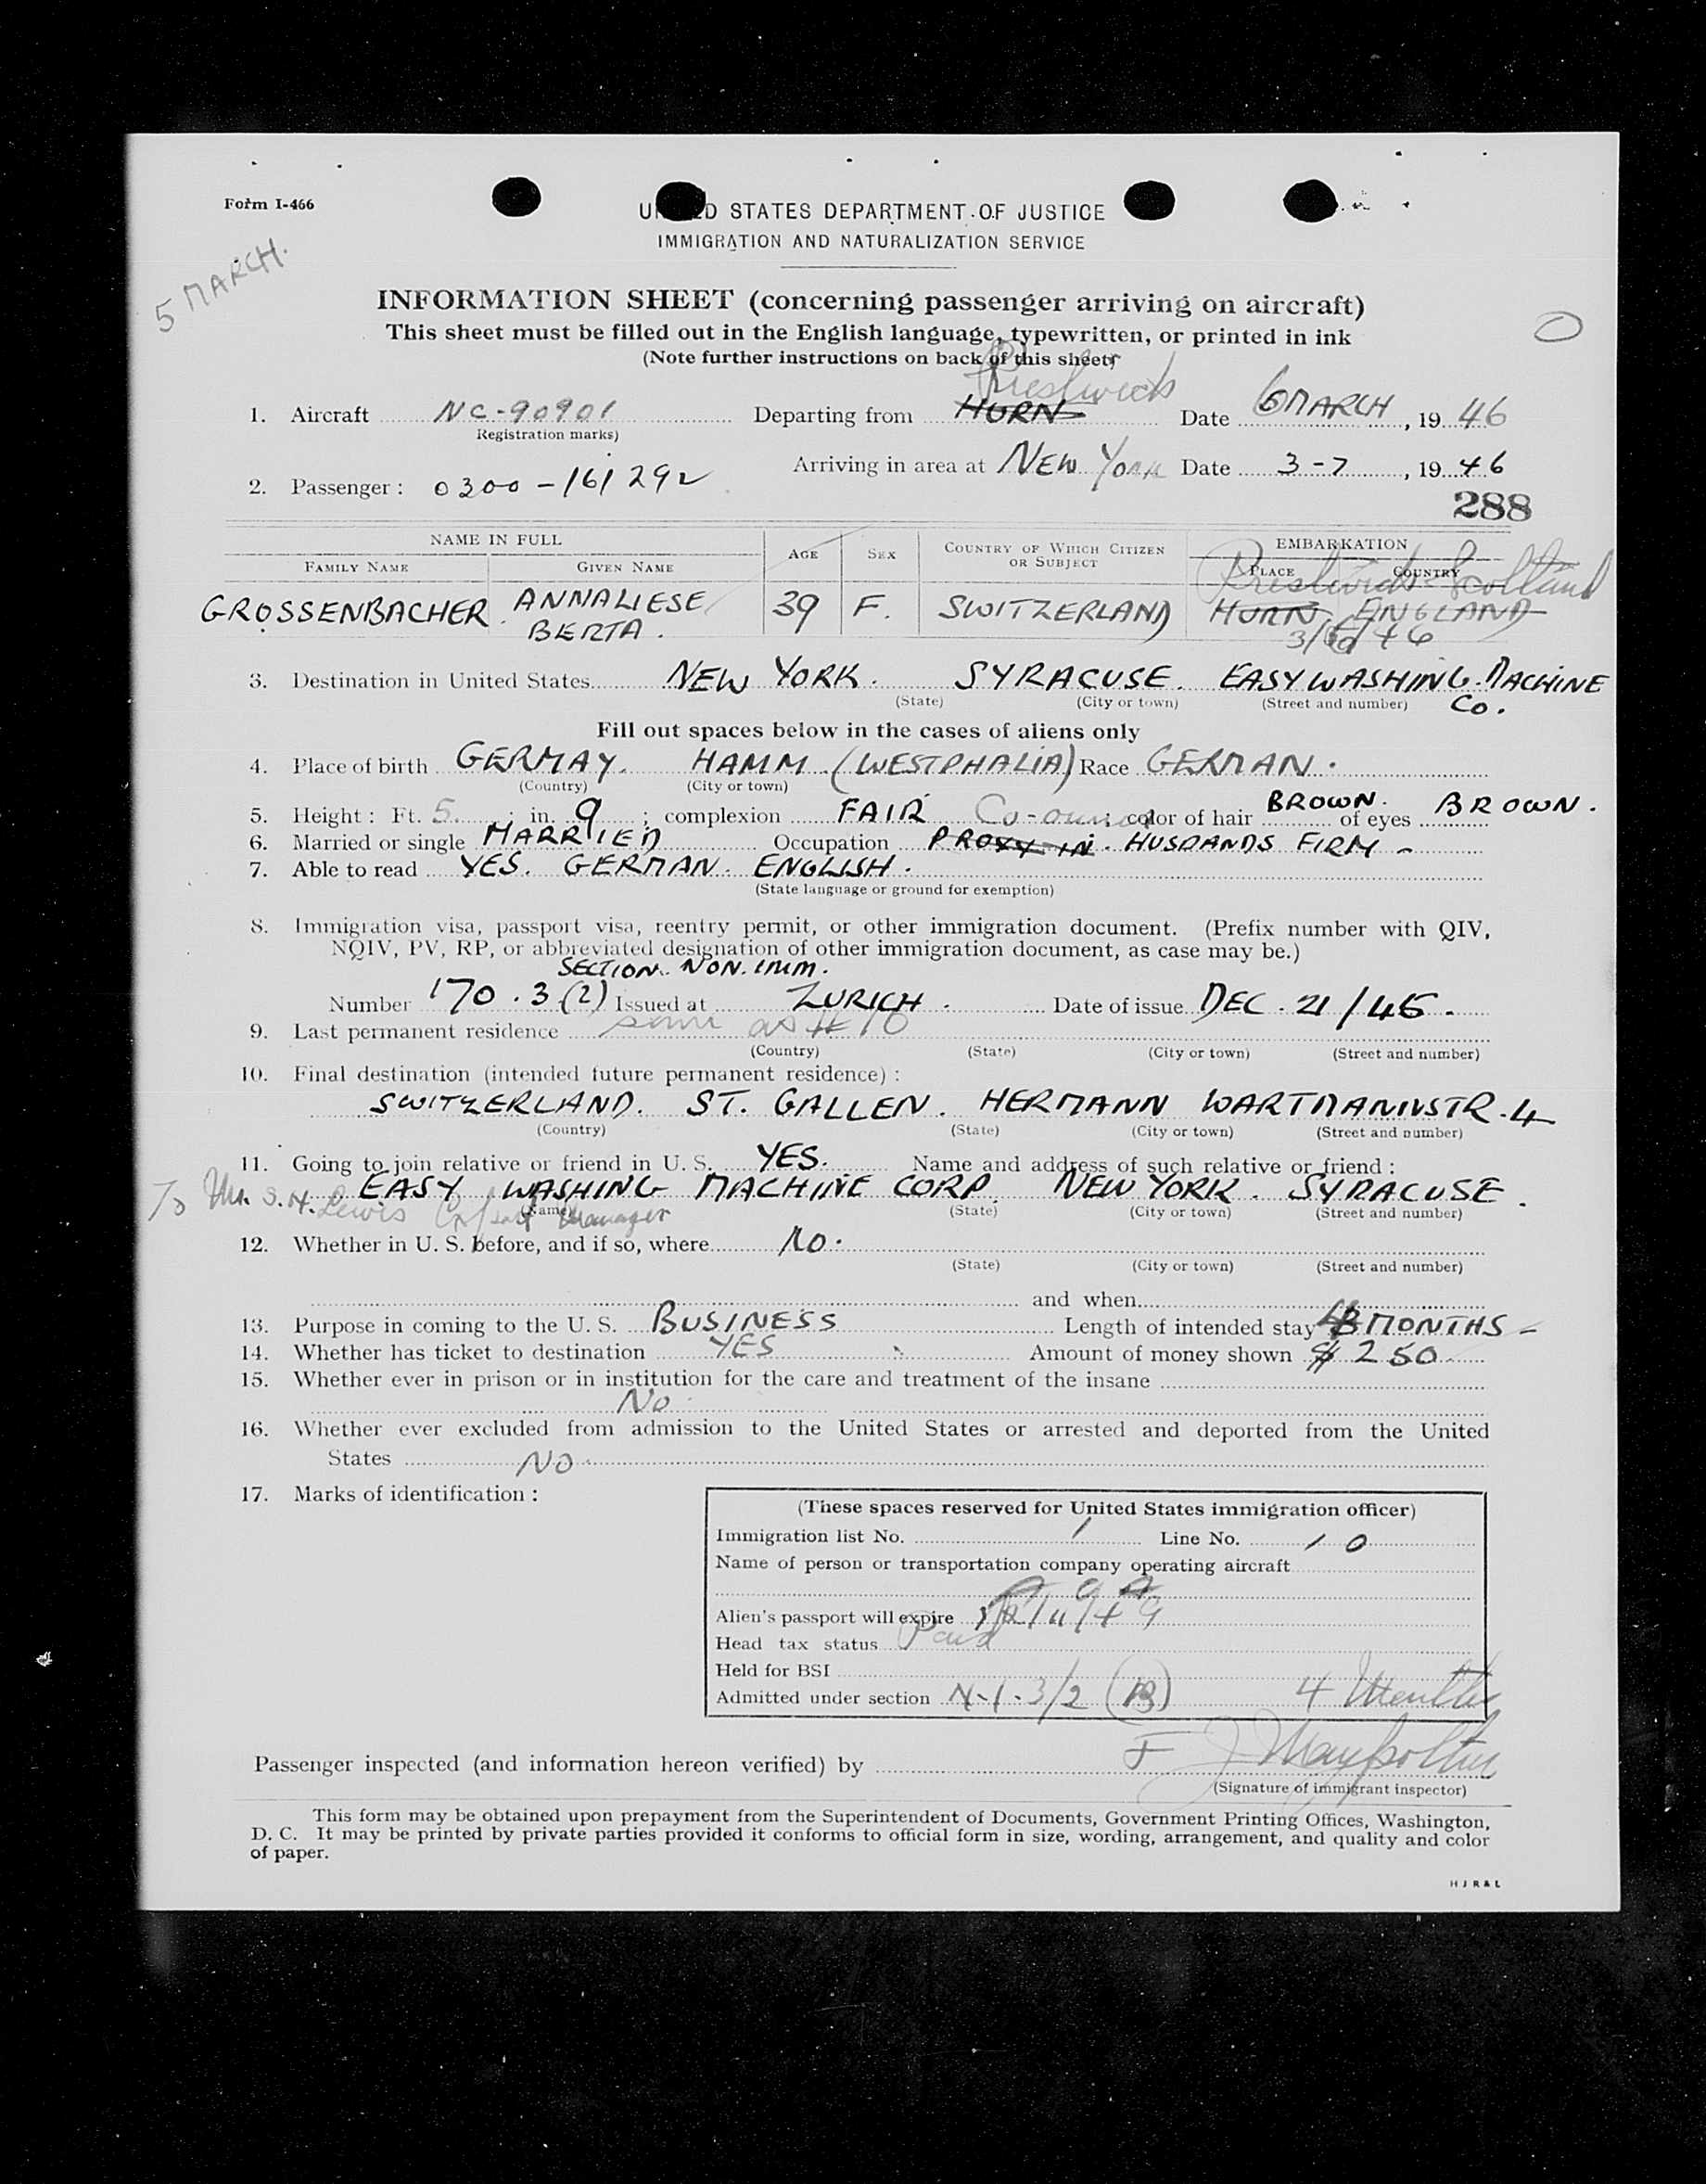 Form I-466
UNITED STATES DEPARTMENT OF JUSTICE
IMMIGRATION AND NATURALIZATION SERVICE
5 MARCH.
INFORMATION SHEET (concerning passenger arriving on aircraft)
This sheet must be filled out in the English language, typewritten, or printed in ink
(Note further instructions on back of this sheet)
Prestwick
1. Aircraft NC-90901 Departing from HURN Date 6 MARCH, 19 46
(Registration marks)
Arriving in area at NEW YORK Date 3-7, 19 46
2. Passenger: 0300-161292
288
NAME IN FULL AGE SEX COUNTRY OF WHICH CITIZEN OR SUBJECT EMBARKATION
FAMILY NAME GIVEN NAME PLACE COUNTRY
Prestwick Scotland
GROSSENBACHER. ANNALIESE 39 F. SWITZERLAND HURN ENGLAND
BERTA. 3/6/46
3. Destination in United States NEW YORK. SYRACUSE. EASY WASHING MACHINE
(State) (City or town) (Street and number) CO.
Fill out spaces below in the cases of aliens only
4. Place of birth GERMAY. HAMM (WESTPHALIA) Race GERMAN.
(Country) (City or town)
5. Height: Ft. 5 ; in. 9 ; complexion FAIR ; color of hair BROWN. of eyes BROWN.
Co-owner
6. Married or single MARRIED Occupation PROXY IN. HUSBANDS FIRM -
7. Able to read YES. GERMAN. ENGLISH.
(State language or ground for exemption)
8. Immigration visa, passport visa, reentry permit, or other immigration document. (Prefix number with QIV,
NQIV, PV, RP, or abbreviated designation of other immigration document, as case may be.)
SECTION. NON. IMM.
Number 170.3(2) Issued at ZURICH. Date of issue DEC. 21/45.
9. Last permanent residence same as # 10
(Country) (State) (City or town) (Street and number)
10. Final destination (intended future permanent residence):
SWITZERLAND. ST. GALLEN. HERMANN WARTMANNSTR. 4
(Country) (State) (City or town) (Street and number)
11. Going to join relative or friend in U. S. YES. Name and address of such relative or friend:
EASY WASHING MACHINE CORP. NEW YORK. SYRACUSE.
To Mr. S. H. Lewis Export Manager
(Name) (State) (City or town) (Street and number)
12. Whether in U. S. before, and if so, where NO.
(State) (City or town) (Street and number)
and when
13. Purpose in coming to the U. S. BUSINESS Length of intended stay 4 MONTHS -
14. Whether has ticket to destination YES Amount of money shown $ 250
15. Whether ever in prison or in institution for the care and treatment of the insane
No
16. Whether ever excluded from admission to the United States or arrested and deported from the United
States NO
17. Marks of identification:
(These spaces reserved for United States immigration officer)
Immigration list No. 1 Line No. 10
Name of person or transportation company operating aircraft
Alien's passport will expire
Head tax status Paid
Held for BSI
Admitted under section N-1-3/2 (B) 4 Months
Passenger inspected (and information hereon verified) by
(Signature of immigrant inspector)
This form may be obtained upon prepayment from the Superintendent of Documents, Government Printing Offices, Washington,
D. C. It may be printed by private parties provided it conforms to official form in size, wording, arrangement, and quality and color
of paper.
H J R & L